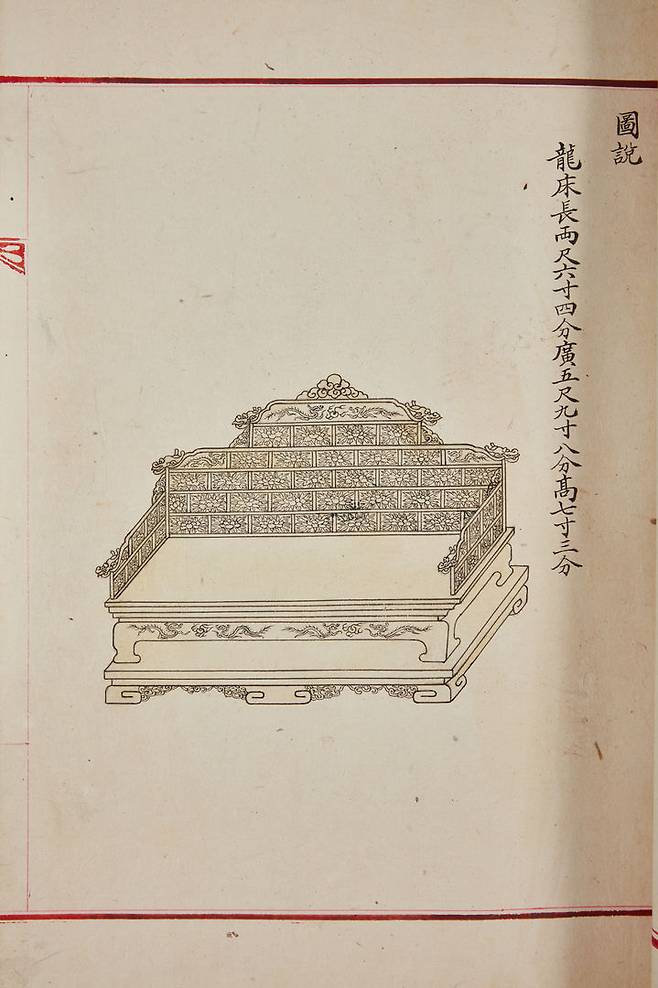 圖說
龍床長兩尺六寸四分廣五尺九寸八分髙七寸三分